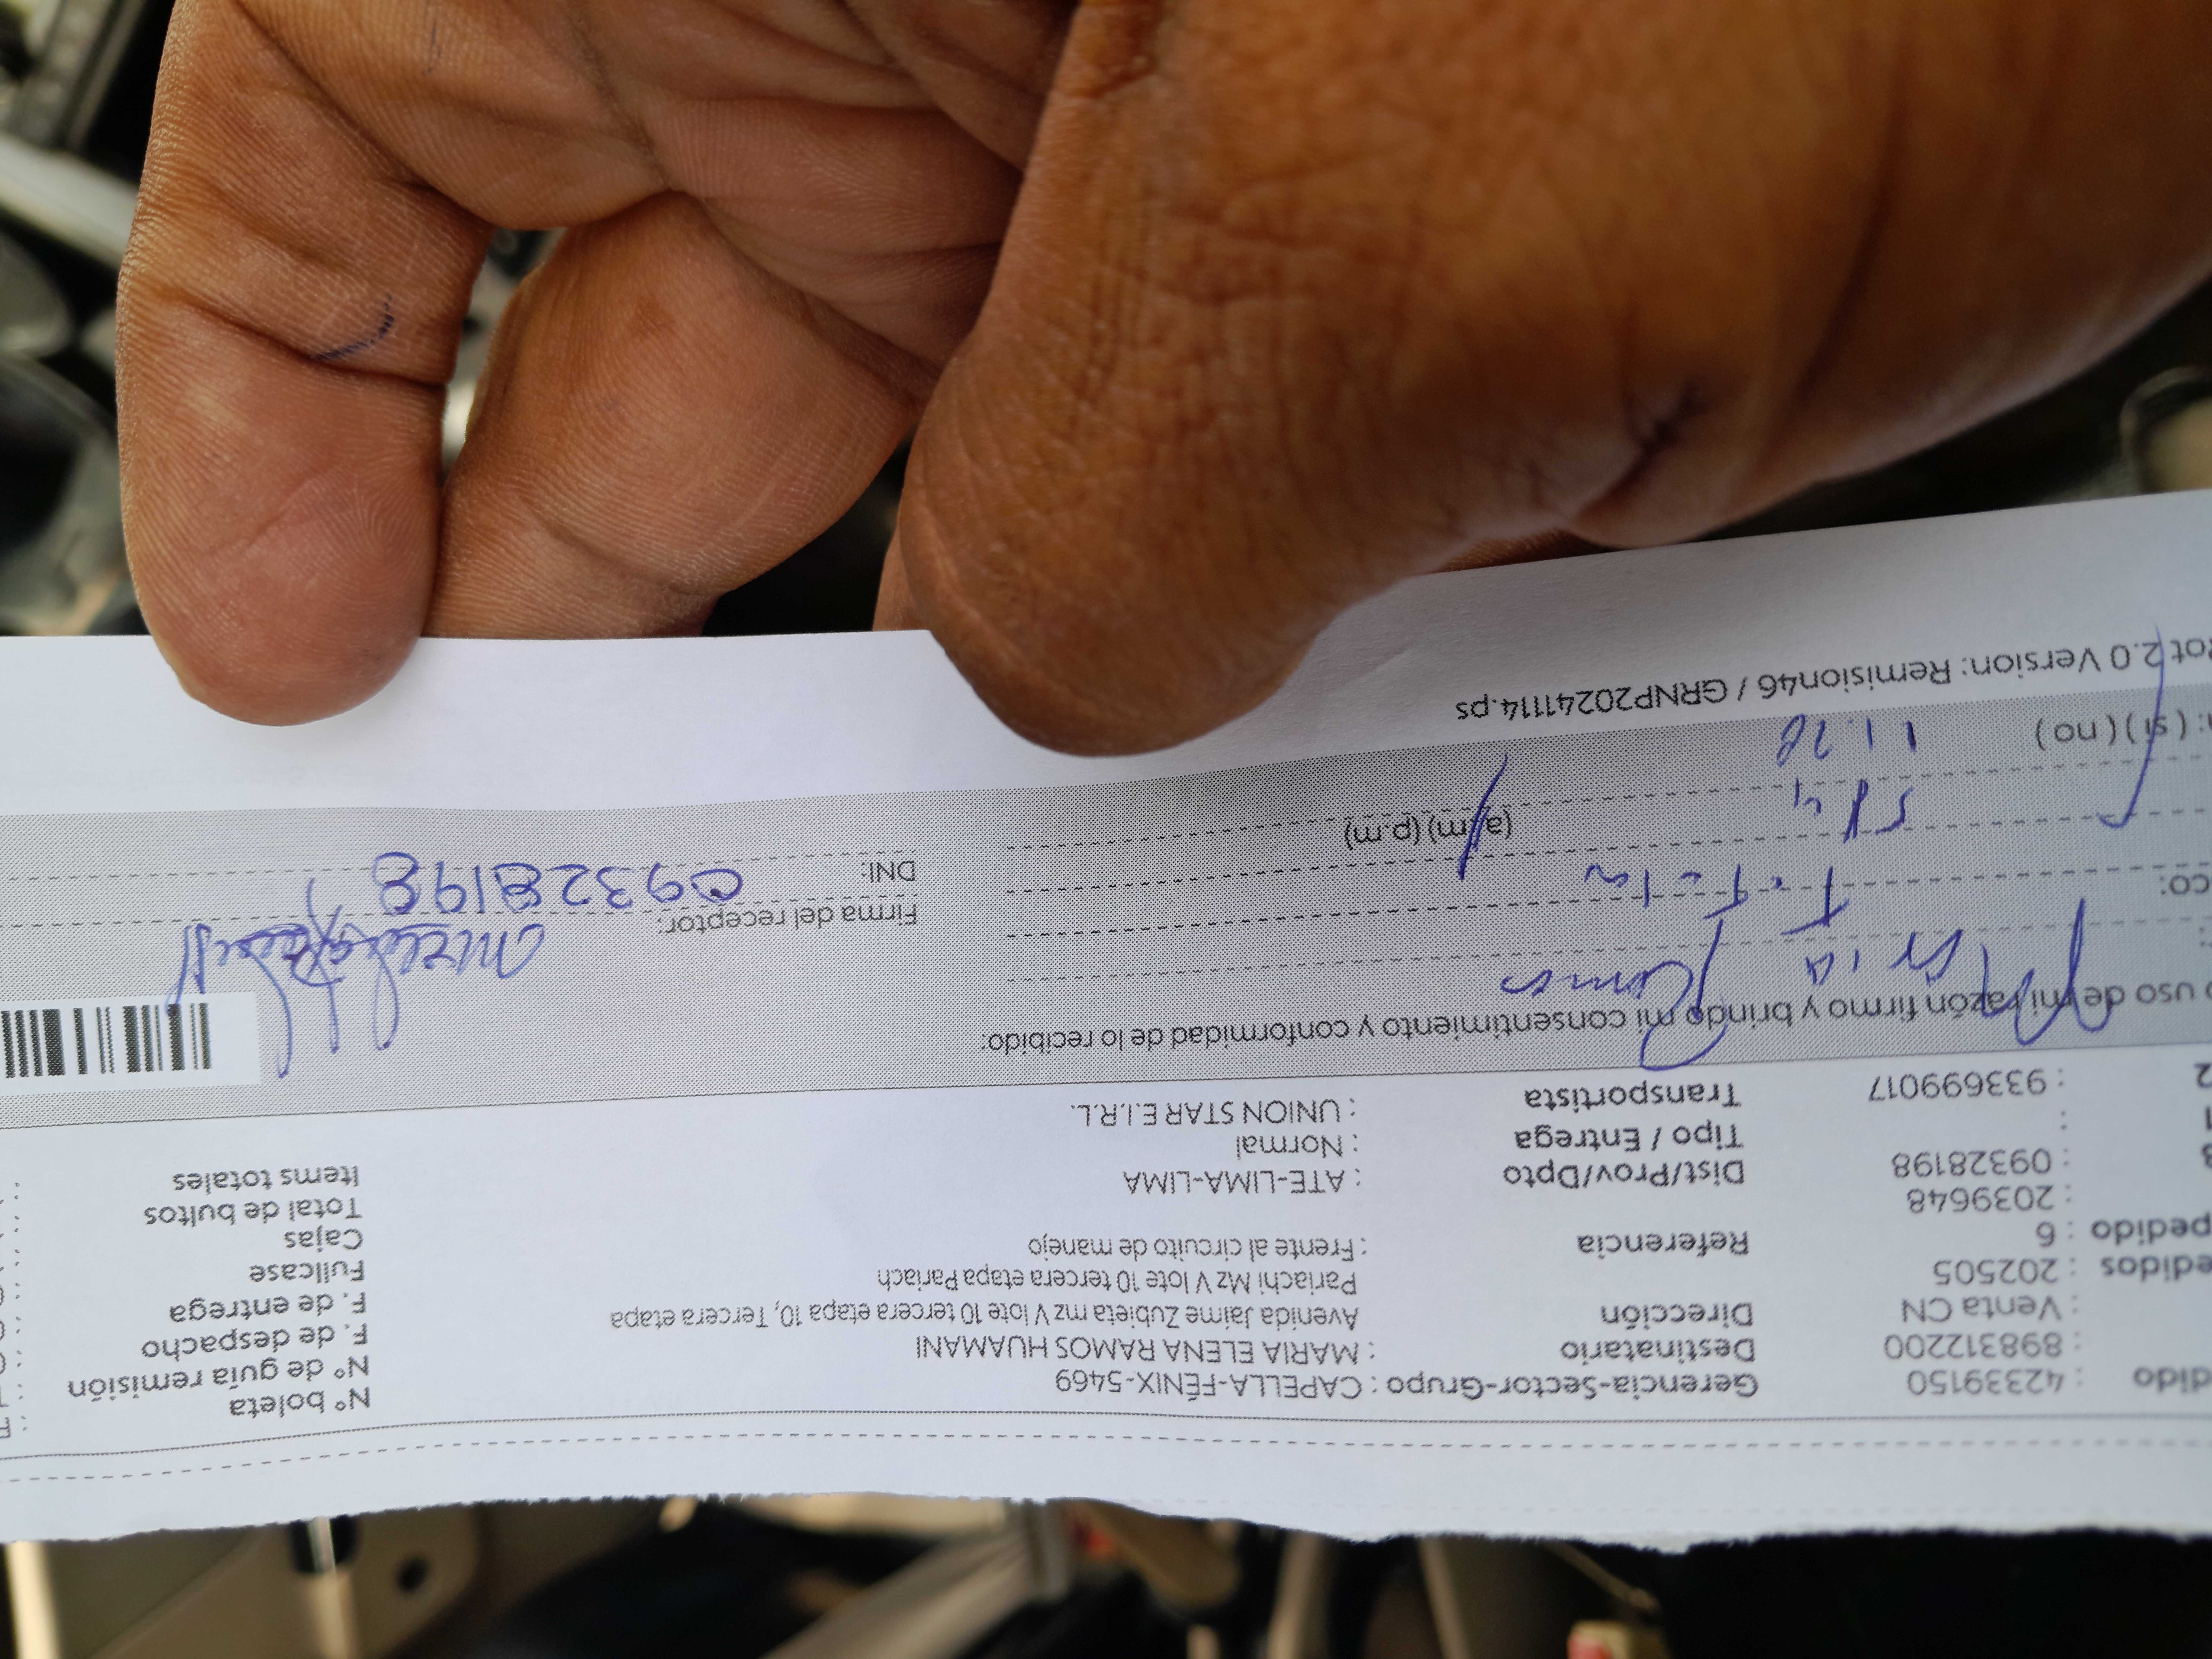 dido : 42339150 Gerencia-Sector-Grupo : CAPELLA-FÉNIX-5469 N° boleta :
: 898312200 Destinatario : MARIA ELENA RAMOS HUAMANI N° de guía remisión :
: Venta CN Dirección Avenida Jaime Zubieta mz V lote 10 tercera etapa 10, Tercera etapa F. de despacho :
edidos : 202505 Pariachi Mz V lote 10 tercera etapa Pariach F. de entrega :
pedido : 6 Referencia : Frente al circuito de manejo Fullcase :
: 2039648 Cajas :
: 09328198 Dist/Prov/Dpto : ATE-LIMA-LIMA Total de bultos :
: Tipo / Entrega : Normal Items totales :
: 933699017 Transportista : UNION STAR E.I.R.L.
o uso de mi razón firmo y brindo mi consentimiento y conformidad de lo recibido:
Maria Ramos
Firma del receptor:
co: Titular
DNI: 09328198
(a.m) (p.m)
: (si) (no)
Rot 2.0 Version: Remision46 / GRNP20241114.ps